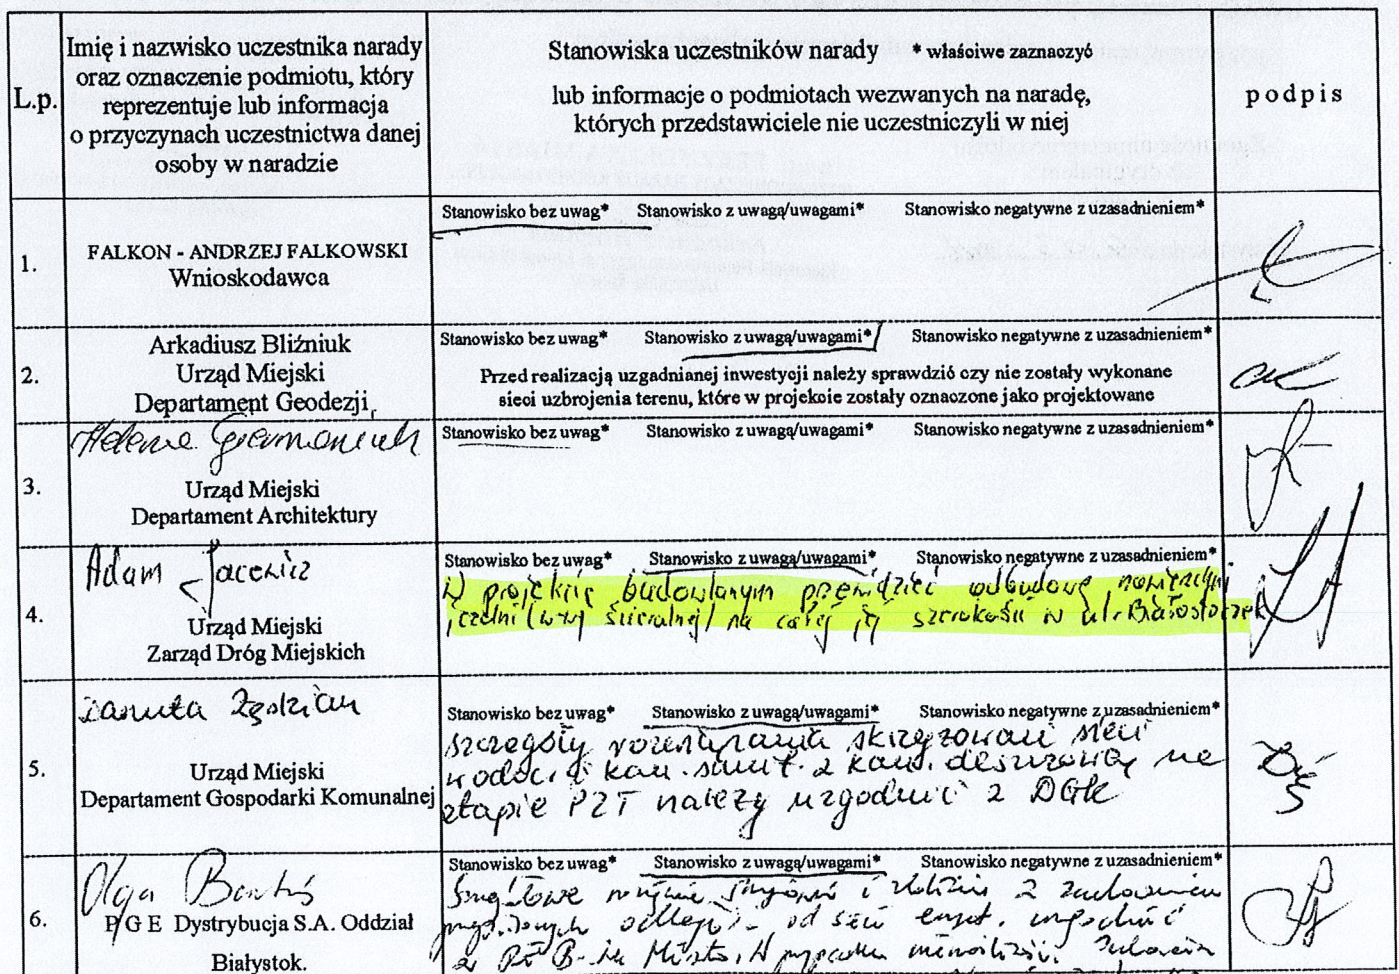 L.p.
Imię i nazwisko uczestnika narady
oraz oznaczenie podmiotu, który
reprezentuje lub informacja
o przyczynach uczestnictwa danej
osoby w naradzie
Stanowiska uczestników narady * właściwe zaznaczyć
lub informacje o podmiotach wezwanych na naradę,
których przedstawiciele nie uczestniczyli w niej
podpis
1.
FALKON - ANDRZEJ FALKOWSKI
Wnioskodawca
Stanowisko bez uwag* Stanowisko z uwagą/uwagami* Stanowisko negatywne z uzasadnieniem*
2.
Arkadiusz Bliźniuk
Urząd Miejski
Departament Geodezji
Stanowisko bez uwag* Stanowisko z uwagą/uwagami* Stanowisko negatywne z uzasadnieniem*
Przed realizacją uzgadnianej inwestycji należy sprawdzić czy nie zostały wykonane
sieci uzbrojenia terenu, które w projekcie zostały oznaczone jako projektowane
3.
Urząd Miejski
Departament Architektury
Stanowisko bez uwag* Stanowisko z uwagą/uwagami* Stanowisko negatywne z uzasadnieniem*
4.
Adam
Urząd Miejski
Zarząd Dróg Miejskich
Stanowisko bez uwag* Stanowisko z uwagą/uwagami* Stanowisko negatywne z uzasadnieniem*
W projekcie budowlanym przewidzieć odbudowę nawierzchni
jezdni (w-wy ścieralnej) na całej jej szerokości w ul.
5.
Danuta
Urząd Miejski
Departament Gospodarki Komunalnej
Stanowisko bez uwag* Stanowisko z uwagą/uwagami* Stanowisko negatywne z uzasadnieniem*
szczegóły rozwiązania skrzyżowań sieci
wodoc. i kan. sanit. z kan. deszczową na
etapie PZT należy uzgodnić z DGK
6.
Olga
PGE Dystrybucja S.A. Oddział
Białystok.
Stanowisko bez uwag* Stanowisko z uwagą/uwagami* Stanowisko negatywne z uzasadnieniem*
od sieci uzgodnić